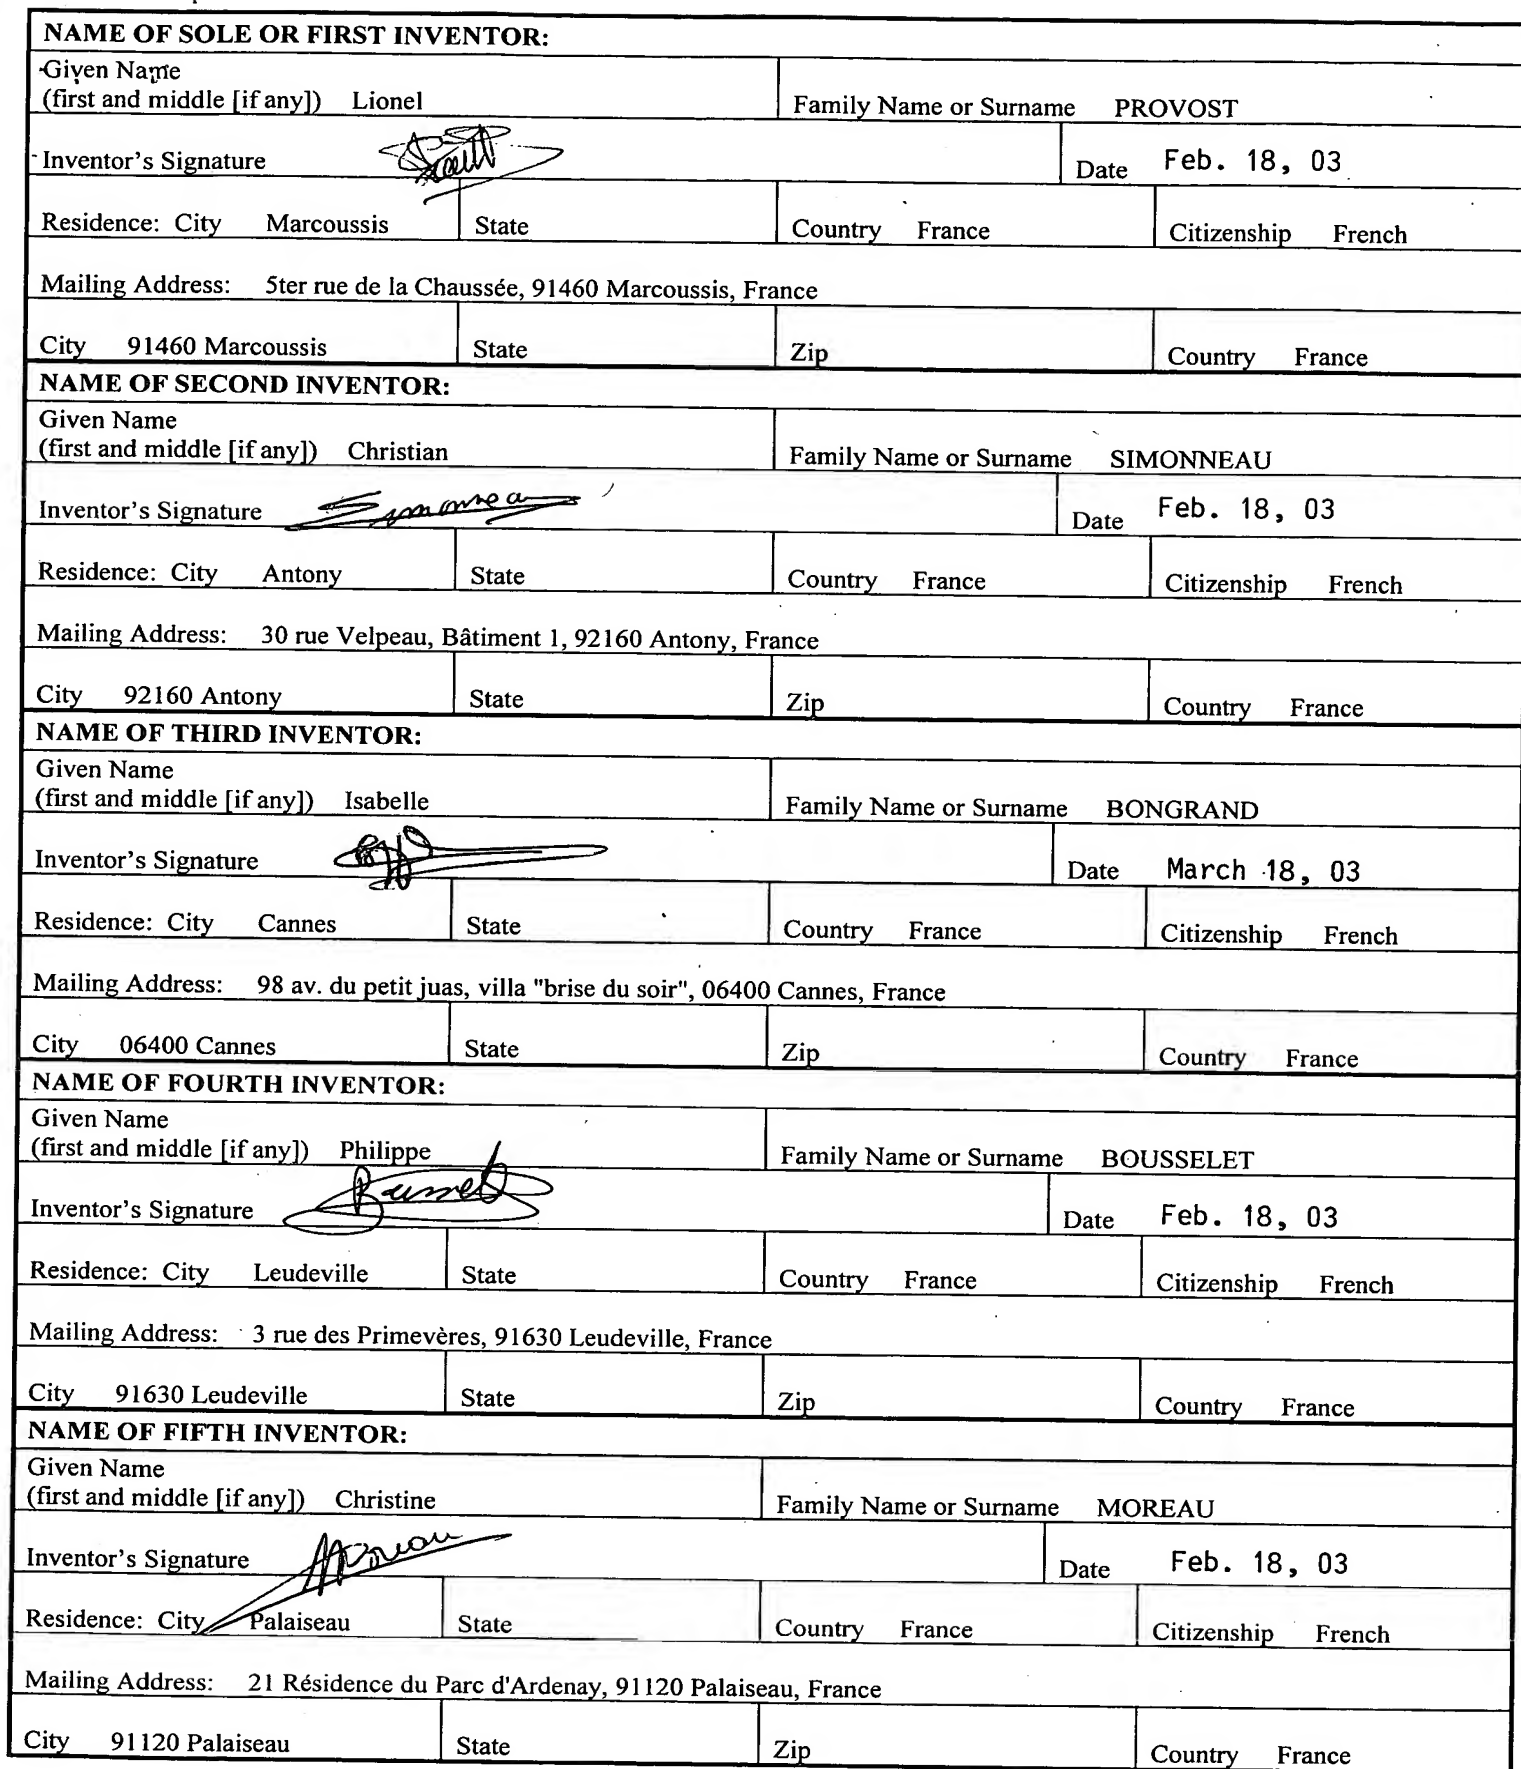 NAME OF SOLE OR FIRST INVENTOR:
Given Name
(first and middle [if any]) Lionel Family Name or Surname PROVOST
Inventor's Signature Date Feb. 18, 03
Residence: City Marcoussis State Country France Citizenship French
Mailing Address: 5ter rue de la Chaussée, 91460 Marcoussis, France
City 91460 Marcoussis State Zip Country France
NAME OF SECOND INVENTOR:
Given Name
(first and middle [if any]) Christian Family Name or Surname SIMONNEAU
Inventor's Signature Simonneau Date Feb. 18, 03
Residence: City Antony State Country France Citizenship French
Mailing Address: 30 rue Velpeau, Bâtiment 1, 92160 Antony, France
City 92160 Antony State Zip Country France
NAME OF THIRD INVENTOR:
Given Name
(first and middle [if any]) Isabelle Family Name or Surname BONGRAND
Inventor's Signature Date March 18, 03
Residence: City Cannes State Country France Citizenship French
Mailing Address: 98 av. du petit juas, villa "brise du soir", 06400 Cannes, France
City 06400 Cannes State Zip Country France
NAME OF FOURTH INVENTOR:
Given Name
(first and middle [if any]) Philippe Family Name or Surname BOUSSELET
Inventor's Signature Date Feb. 18, 03
Residence: City Leudeville State Country France Citizenship French
Mailing Address: 3 rue des Primevères, 91630 Leudeville, France
City 91630 Leudeville State Zip Country France
NAME OF FIFTH INVENTOR:
Given Name
(first and middle [if any]) Christine Family Name or Surname MOREAU
Inventor's Signature Moreau Date Feb. 18, 03
Residence: City Palaiseau State Country France Citizenship French
Mailing Address: 21 Résidence du Parc d'Ardenay, 91120 Palaiseau, France
City 91120 Palaiseau State Zip Country France